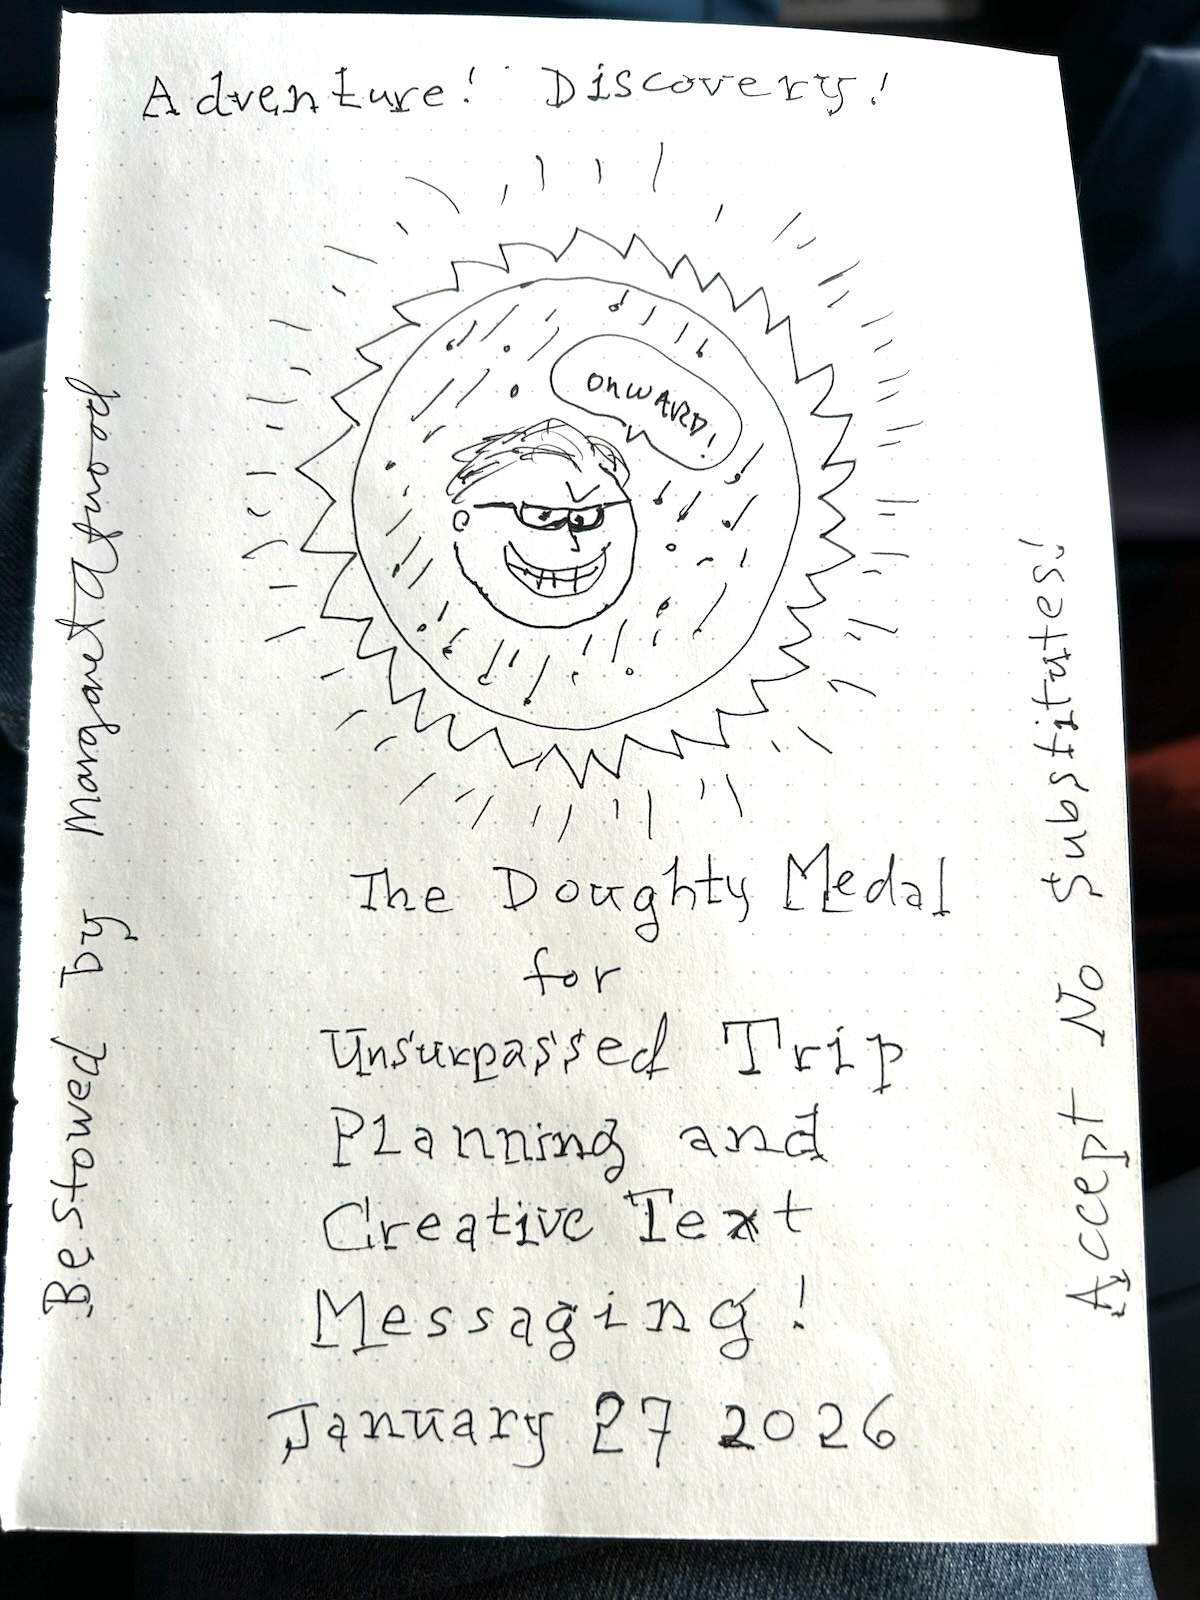 Adventure! Discovery!
onWARD!
The Doughty Medal
for
Unsurpassed Trip
Planning and
Creative Text
Messaging!
January 27 2026
Bestowed by Margaret Atwood
Accept No Substitutes!